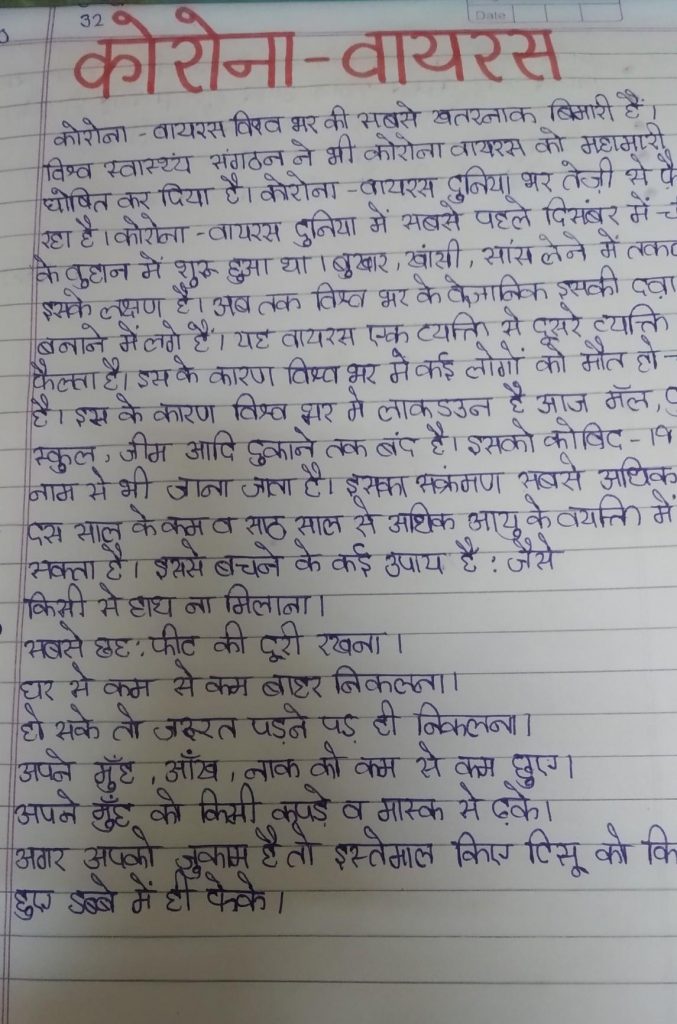 32
Date
कोरोना-वायरस
कोरोना - वायरस विश्व भर की सबसे खतरनाक बिमारी है।
विश्व स्वास्थ्य संगठन ने भी कोरोना वायरस को महामारी
घोषित कर दिया है। कोरोना - वायरस दुनिया भर तेज़ी से
रहा है। कोरोना - वायरस दुनिया में सबसे पहले दिसंबर में
के वुहान में शुरू हुआ था। बुखार, खांसी, सांस लेने में
इसके लक्षण है। अब तक विश्व भर के वैज्ञानिक इसकी दवा
बनाने में लगे हैं। यह वायरस एक व्यक्ति से दूसरे व्यक्ति
फैलता है। इस के कारण विश्व भर में कई लोगों की मौत हो
है। इस के कारण विश्व भर में लाकडउन है आज मॅल,
स्कुल, जीम आदि दुकाने तक बंद है। इसको कोविद - 19
नाम से भी जाना जाता है। इसका सक्रंमण सबसे अधिक
दस साल के कम व साठ साल से अधिक आयु के वयक्ति में
सकता है। इससे बचने के कई उपाय है : जैसे
किसी से हाथ ना मिलाना।
सबसे छह: फीट की दूरी रखना।
घर से कम से कम बाहर निकलना।
हो सके तो जरूरत पड़ने पड़ ही निकलना।
अपने मुँह, आँख, नाक को कम से कम छुए।
अपने मुँह को किसी कपड़े व मास्क से ढ़के।
अगर आपको जुकाम है तो इस्तेमाल किए टिसू को
हुए डब्बे में ही फेके।